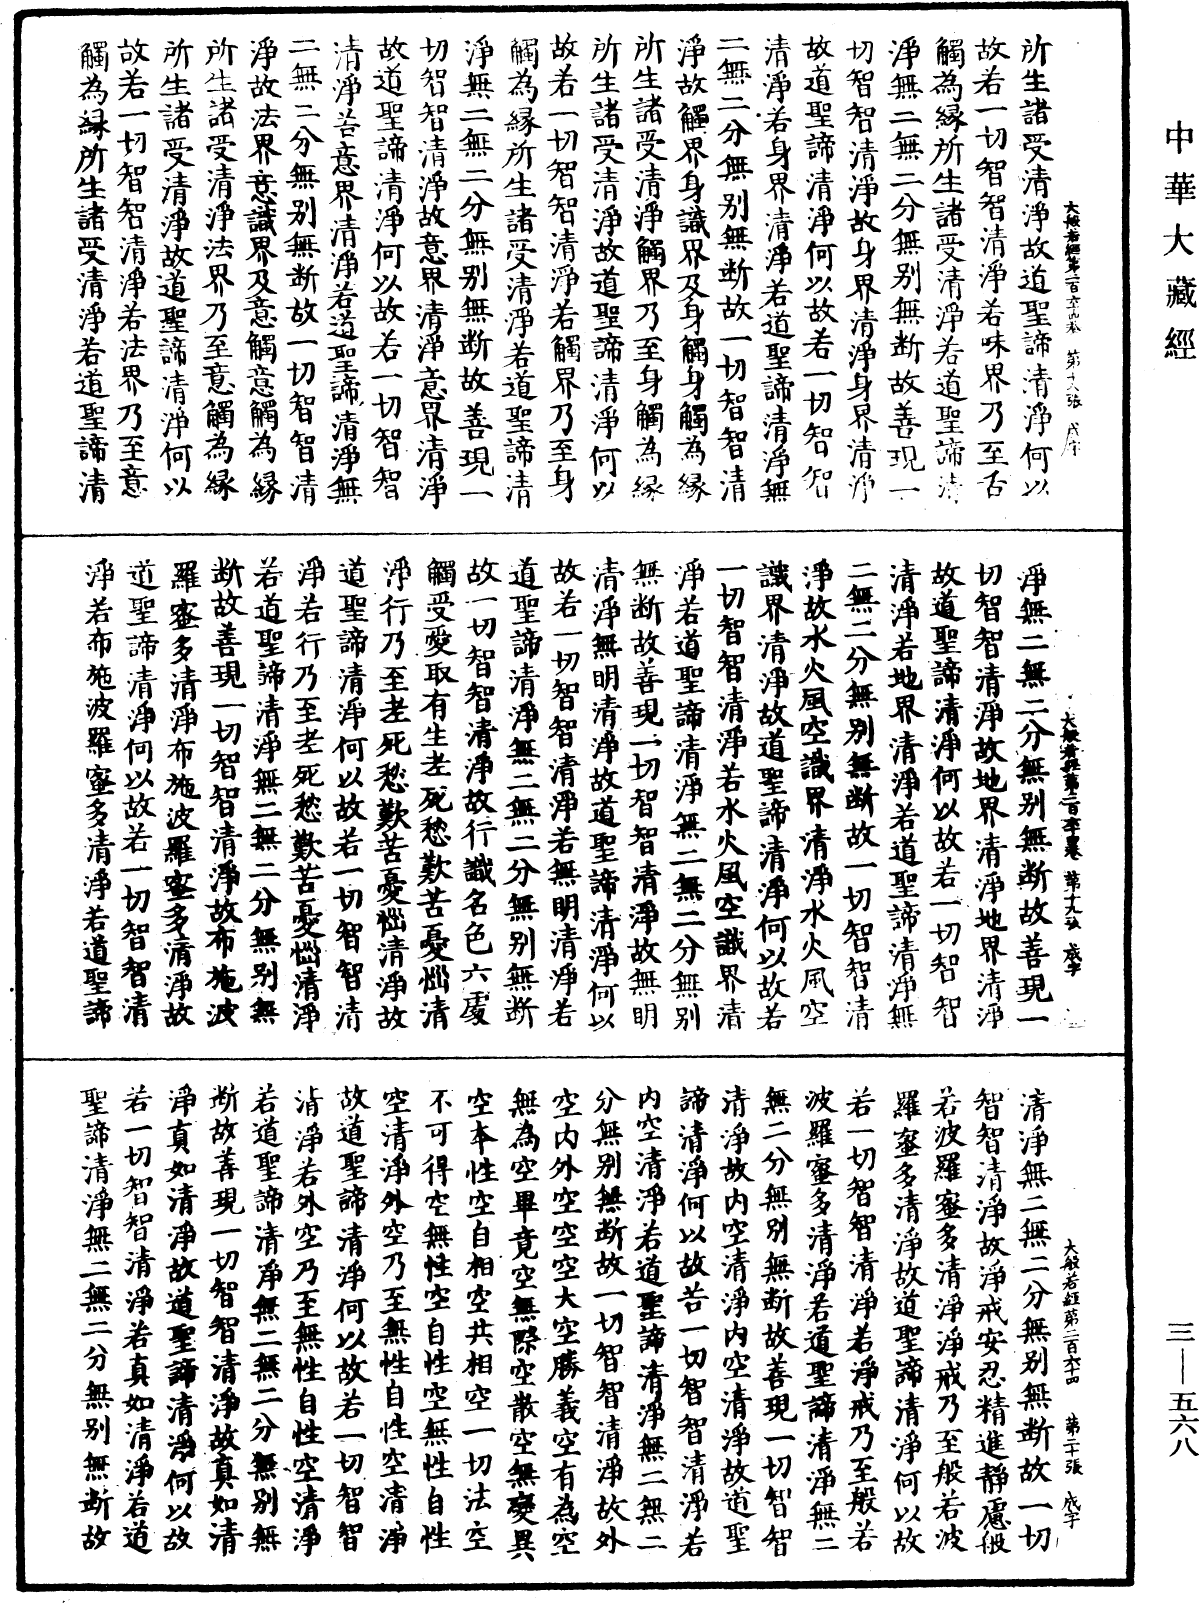 中華大藏經
大般若經第二百六十四卷 第十八張 成字
所生諸受清淨故道聖諦清淨何以
故若一切智智清淨若味界乃至舌
觸為緣所生諸受清淨若道聖諦清
淨無二無二分無別無斷故善現一
切智智清淨故身界清淨身界清淨
故道聖諦清淨何以故若一切智智
清淨若身界清淨若道聖諦清淨無
二無二分無別無斷故一切智智清
淨故觸界身識界及身觸身觸為緣
所生諸受清淨觸界乃至身觸為緣
所生諸受清淨故道聖諦清淨何以
故若一切智智清淨若觸界乃至身
觸為緣所生諸受清淨若道聖諦清
淨無二無二分無別無斷故善現一
切智智清淨故意界清淨意界清淨
故道聖諦清淨何以故若一切智智
清淨若意界清淨若道聖諦清淨無
二無二分無別無斷故一切智智清
淨故法界意識界及意觸意觸為緣
所生諸受清淨法界乃至意觸為緣
所生諸受清淨故道聖諦清淨何以
故若一切智智清淨若法界乃至意
觸為緣所生諸受清淨若道聖諦清
大般若經第二百六十四卷 第十九張 成字
淨無二無二分無別無斷故善現一
切智智清淨故地界清淨地界清淨
故道聖諦清淨何以故若一切智智
清淨若地界清淨若道聖諦清淨無
二無二分無別無斷故一切智智清
淨故水火風空識界清淨水火風空
識界清淨故道聖諦清淨何以故若
一切智智清淨若水火風空識界清
淨若道聖諦清淨無二無二分無別
無斷故善現一切智智清淨故無明
清淨無明清淨故道聖諦清淨何以
故若一切智智清淨若無明清淨若
道聖諦清淨無二無二分無別無斷
故一切智智清淨故行識名色六處
觸受愛取有生老死愁歎苦憂惱清
淨行乃至老死愁歎苦憂惱清淨故
道聖諦清淨何以故若一切智智清
淨若行乃至老死愁歎苦憂惱清淨
若道聖諦清淨無二無二分無別無
斷故善現一切智智清淨故布施波
羅蜜多清淨布施波羅蜜多清淨故
道聖諦清淨何以故若一切智智清
淨若布施波羅蜜多清淨若道聖諦
大般若經第二百六十四 第二十張 成字
清淨無二無二分無別無斷故一切
智智清淨故淨戒安忍精進靜慮般
若波羅蜜多清淨淨戒乃至般若波
羅蜜多清淨故道聖諦清淨何以故
若一切智智清淨若淨戒乃至般若
波羅蜜多清淨若道聖諦清淨無二
無二分無別無斷故善現一切智智
清淨故內空清淨內空清淨故道聖
諦清淨何以故若一切智智清淨若
內空清淨若道聖諦清淨無二無二
分無別無斷故一切智智清淨故外
空內外空空空大空勝義空有為空
無為空畢竟空無際空散空無變異
空本性空自相空共相空一切法空
不可得空無性空自性空無性自性
空清淨外空乃至無性自性空清淨
故道聖諦清淨何以故若一切智智
清淨若外空乃至無性自性空清淨
若道聖諦清淨無二無二分無別無
斷故善現一切智智清淨故真如清
淨真如清淨故道聖諦清淨何以故
若一切智智清淨若真如清淨若道
聖諦清淨無二無二分無別無斷故
三—五六八